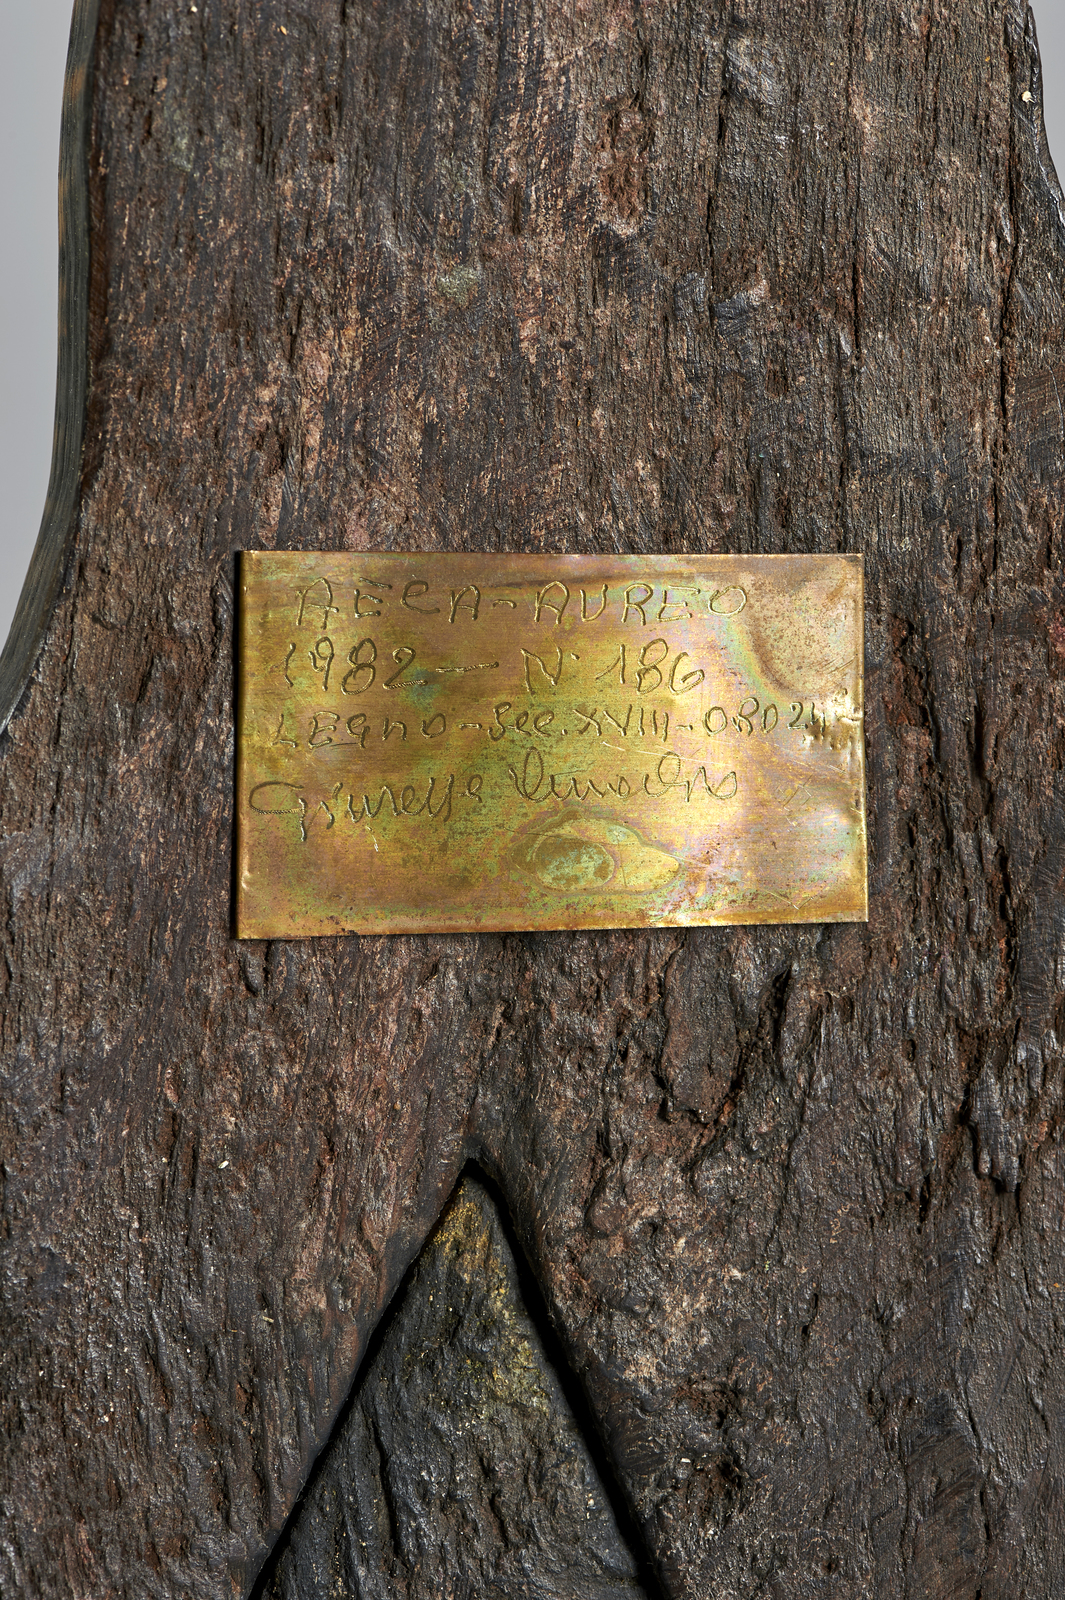 AECA-AUREO
1982 - N. 186
LEGNO - Sec. XVIII - ORO 24